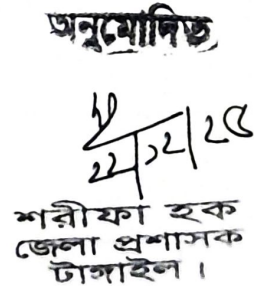 অনুমোদিত
২২/১২/২৫
শরীফা হক
জেলা প্রশাসক
টাঙ্গাইল।